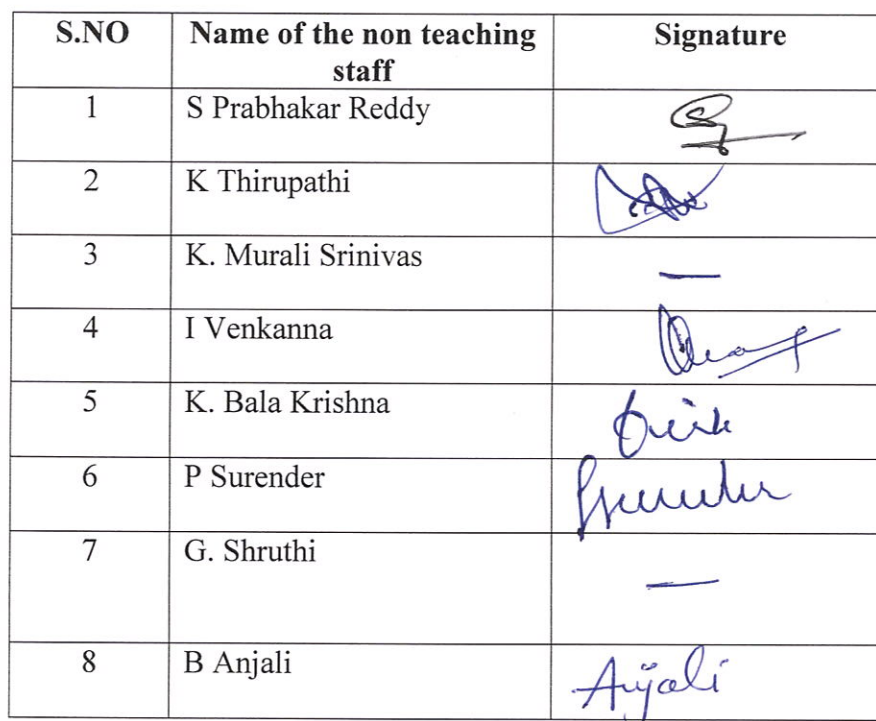 S.NO Name of the non teaching staff Signature
1 S Prabhakar Reddy
2 K Thirupathi
3 K. Murali Srinivas —
4 I Venkanna
5 K. Bala Krishna
6 P Surender
7 G. Shruthi —
8 B Anjali Anjali